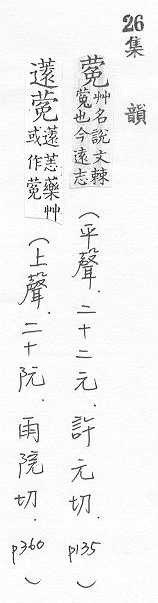 26集韻
蒬 艸名說文棘蒬也今遠志 （平聲．二十二元．許元切．p135）
薳蒬 薳藥艸或作 （上聲．二十阮．雨阮切．p360）